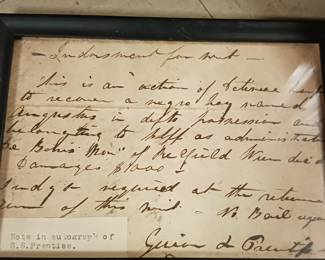 — Indorsment for writ —
This is an action of Detinue
to recover a negro boy named
Augustus in defts possession and
belonging to plff as administrator
de Bonis Non of
Damages $1000
Judgt required at the return
term of this writ — No Bail
Note in autograph of
S.S.Prentiss.